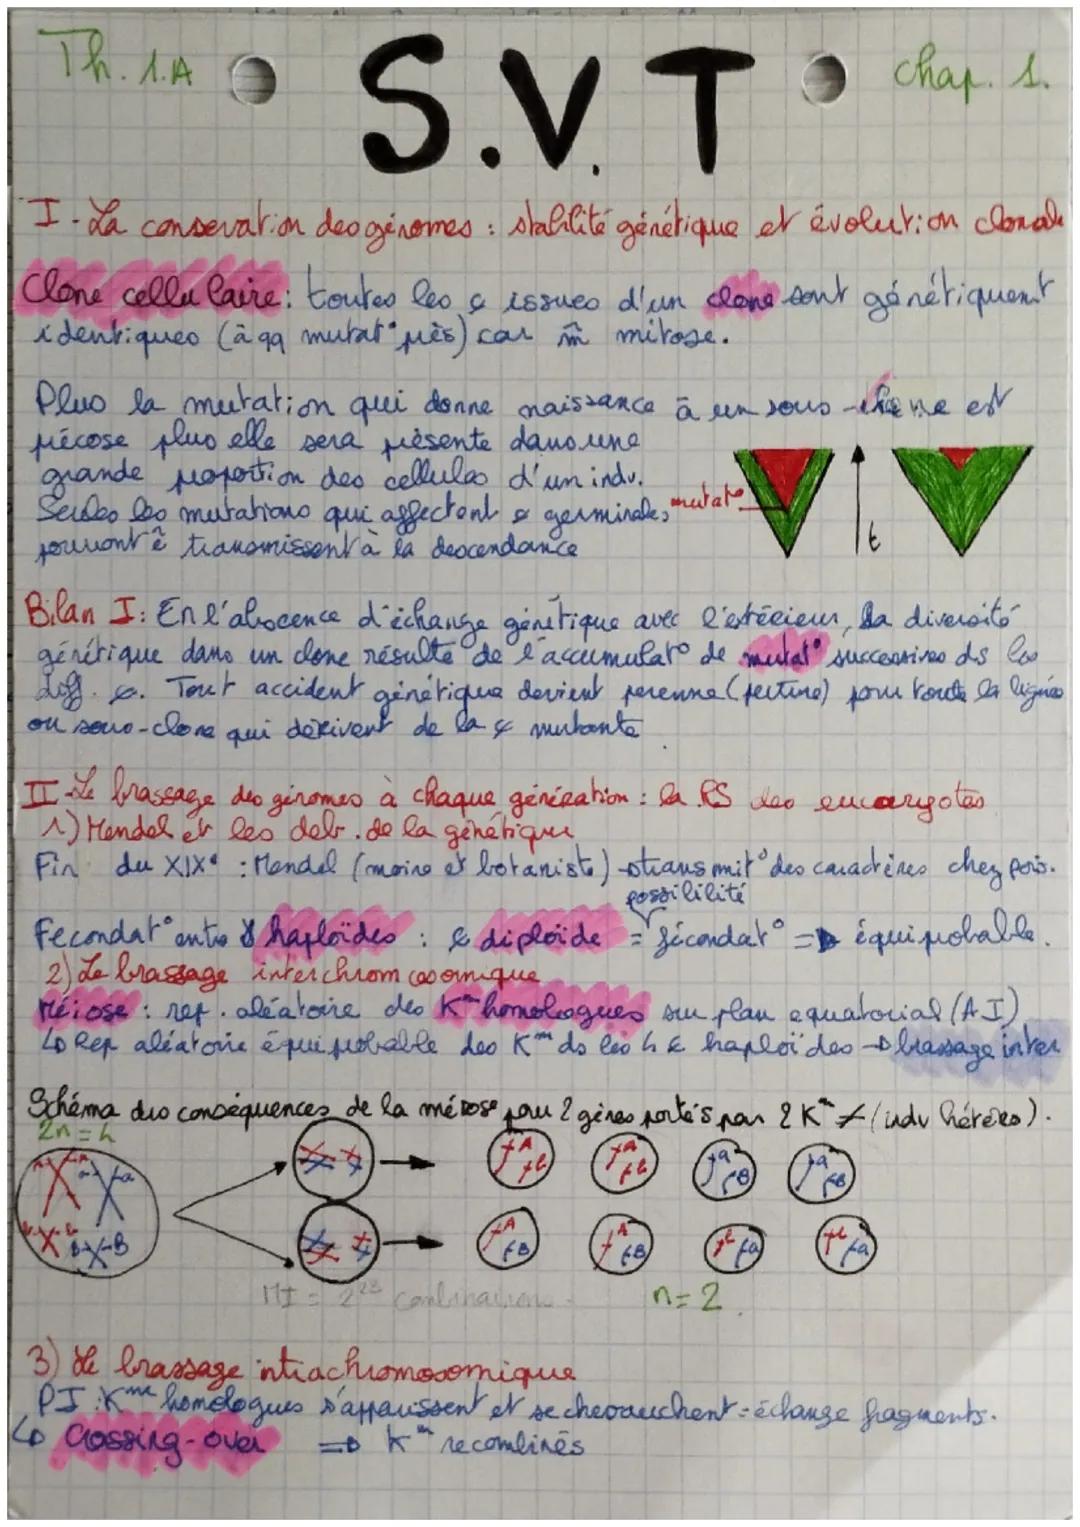 Th. 1.A S.V.T chap. 1.
I - La conservation des génomes : stabilité génétique et évolution clonale
Clone cellulaire : toutes les ¢ issues d'un clone sont génétiquemt
identiques (à qq mutat° près) car m̂ mitose.
Plus la mutation qui donne naissance à un sous-clone est
précose plus elle sera présente dans une
grande proportion des cellules d'un indv.
Seules les mutations qui affectent ¢ germinales
pourront ê transmissent à la descendance
mutat°
t
Bilan I : En l'abscence d'échange génétique avec l'extérieur, la diversité
génétique dans un clone résulte de l'accumulat° de mutat° successives ds les
diff. ¢. Tout accident génétique devient perenne (perture) pour toute la lignée
ou sous-clone qui dérivent de la ¢ mutante
II - Le brassage des génomes à chaque génération : la RS des eucaryotes
1) Mendel et les deb. de la génétique
Fin du XIXe : Mendel (moine et botaniste) → transmit° des caractères chez pois.
possibilité
Fecondat° entre ♂ haploïdes : ¢ diploïde = fécondat° => équiprobable.
2) Le brassage interchromosomique
Méiose : rep. aléatoire des Kme homologues sur plan equatorial (A.I)
↳ Rep aléatoire équiprobable des Kme ds les 4 ¢ haploïdes → brassage inter
Schéma des conséquences de la méiose pour 2 gènes portés par 2 Kme ≠ (indv hétéro).
2n = 4
A A a a
b b B B
A b A b a B a B
A B A B b a b a
MI = 2²³ combinaisons.
n = 2
3) Le brassage intrachromosomique
PI : Kme homologues s'apparissent et se chevauchent = échange fragments.
↳ Crossing-over => Kme recombinés